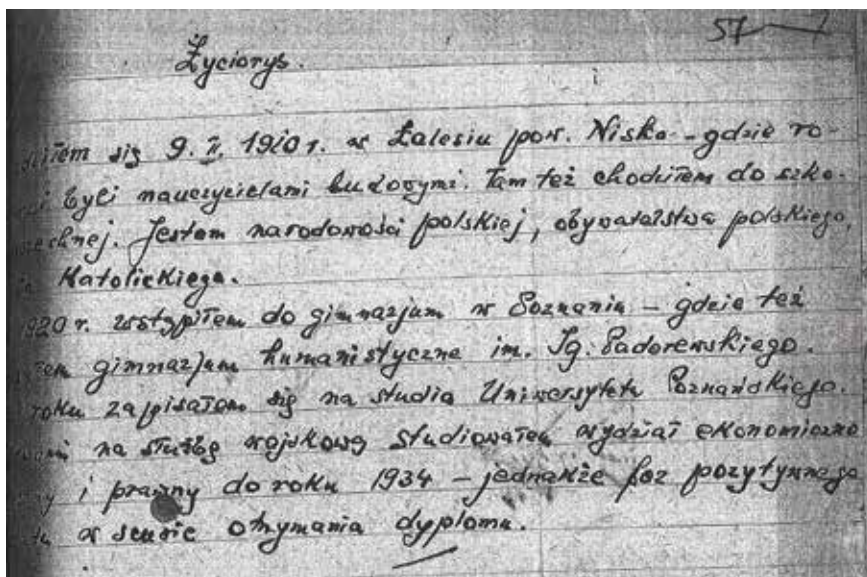 57
Życiorys.
się 9. II. 1910 r. w Zalesiu pow. Nisko - gdzie ro-
byli nauczycielami ludowymi. Tam też chodziłem do szko-
Jestem narodowości polskiej, obywatelstwa polskiego,
Katolickiego.
r. wstąpiłem do gimnazjum w Poznaniu - gdzie też
gimnazjum humanistyczne im. Ig. Paderewskiego.
roku zapisałem się na studia Uniwersytetu Poznańskiego.
na służbę wojskową studiowałem wydział ekonomiczno
i prawny do roku 1934 - jednakże bez pozytywnego
w sensie otrzymania dyplomu.